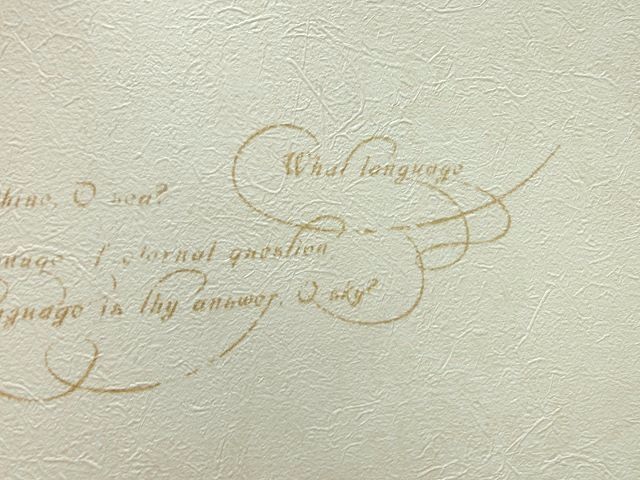 What language
hine, O sea?
eternal question
guage is thy answer, O sky?